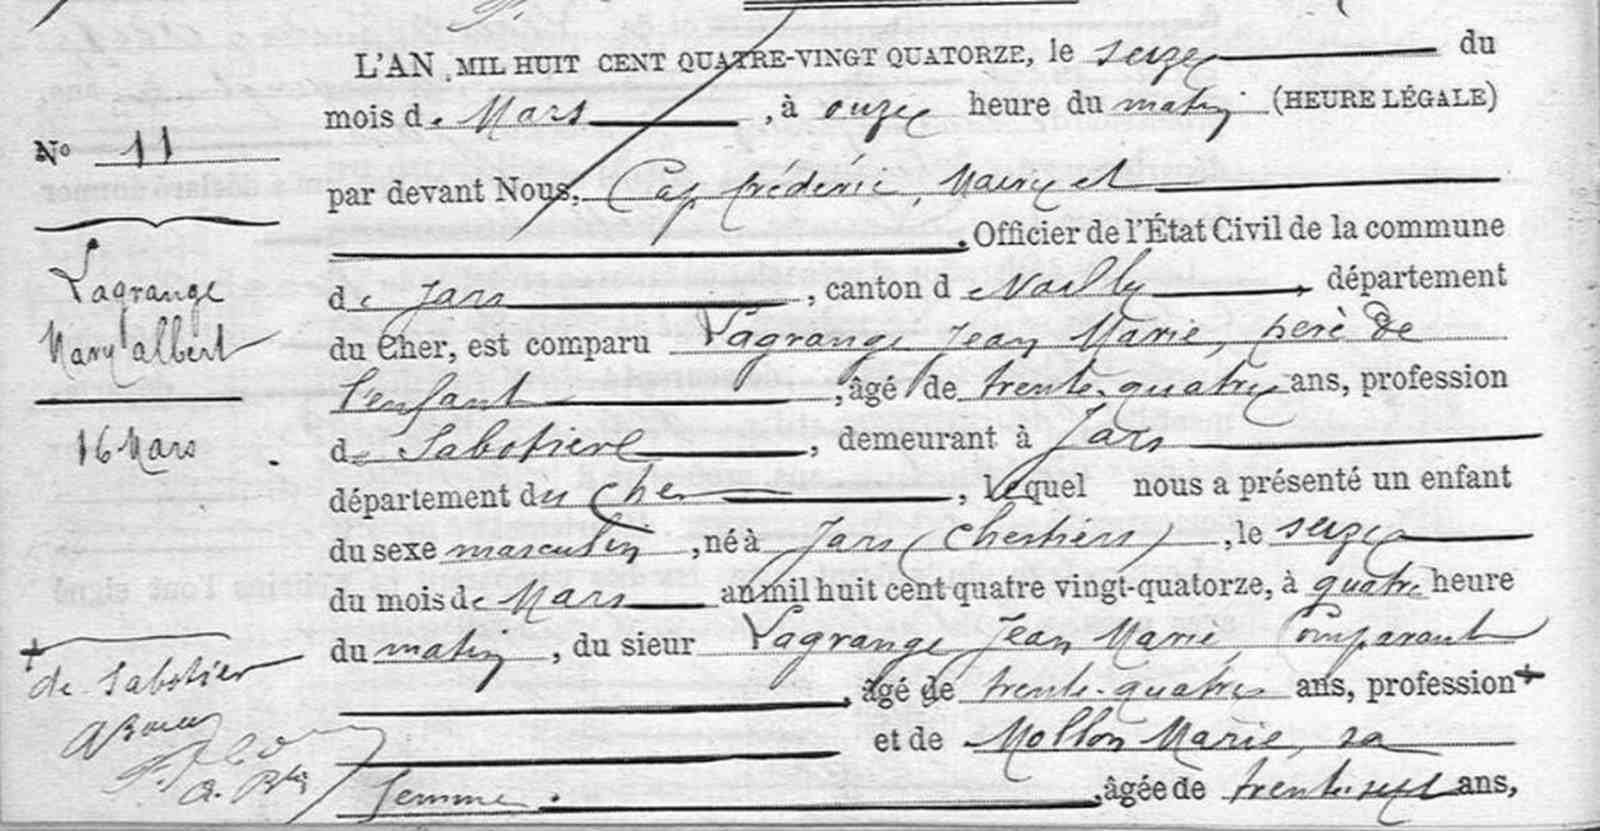 L'AN MIL HUIT CENT QUATRE-VINGT QUATORZE, le seize du
mois de Mars, à onze heure du matin (HEURE LÉGALE)
No 11
par devant Nous, Cap frédéric, Maire et
Officier de l'État Civil de la commune
Lagrange
Mary albert
16 Mars
de Jars, canton d Vailly département
du Cher, est comparu Lagrange Jean Marie, père de
l'enfant, âgé de trente-quatre ans, profession
de Sabotier, demeurant à Jars
département du Cher, lequel nous a présenté un enfant
du sexe masculin, né à Jars (), le seize
du mois de Mars an mil huit cent quatre vingt-quatorze, à quatre heure
du matin, du sieur Lagrange Jean Marie, Comparant
âgé de trente-quatre ans, profession +
+ de Sabotier
et de Mollon Marie, sa
femme. âgée de ans,